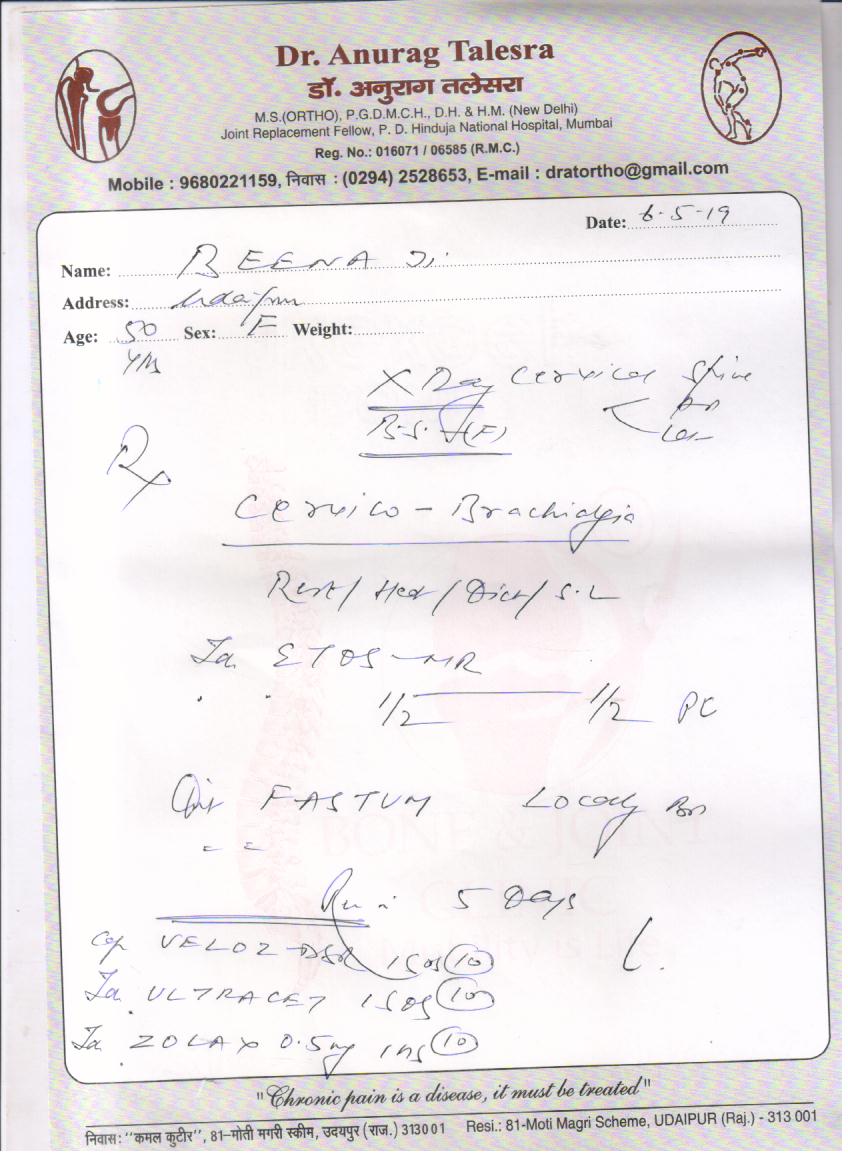 Dr. Anurag Talesra
डॉ. अनुराग तलेसरा
M.S.(ORTHO), P.G.D.M.C.H., D.H. & H.M. (New Delhi)
Joint Replacement Fellow, P. D. Hinduja National Hospital, Mumbai
Reg. No.: 016071 / 06585 (R.M.C.)
Mobile : 9680221159, निवास : (0294) 2528653, E-mail : dratortho@gmail.com
Date: 6-5-19
Name: REENA Ji
Address: Udaipur
Age: 50 Yrs Sex: F Weight:
X Ray Cervical Spine AP Lat
B.S. (F)
Rx
Cervico - Brachialgia
Rest / Heat / Diet / S.L
Ta ETOS-MR
1/2 1/2 PC
Oint FASTUM Locally BD
5 Days
Cap VELOZ-DSR 1 OD (10)
Ta ULTRACET 1 SOS (10)
Ta ZOLAX 0.5mg 1 HS (10)
BONE & JOINT
CLINIC
Mobility is Life
"Chronic pain is a disease, it must be treated"
निवास: "कमल कुटीर", 81-मोती मगरी स्कीम, उदयपुर (राज.) 313001 Resi.: 81-Moti Magri Scheme, UDAIPUR (Raj.) - 313 001